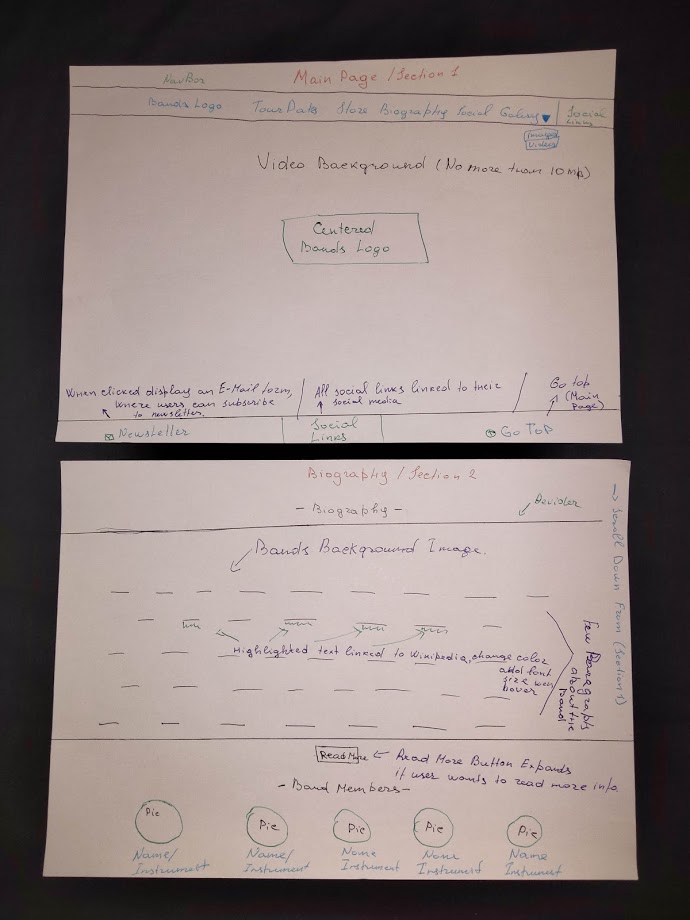 NavBar
Main Page / Section 1
Bands Logo Tour Dats Store Biography Social Galery
Social
Links
Images
Videos
Video Background (No more than 10 mb)
Centered
Bands Logo
When clicked display an E-Mail form,
where users can subscribe
to newsletter.
All social links linked to their
social media
Go top
(Main
Page)
Newsletter
Social
Links
Go Top
Biography / Section 2
- Biography -
Devider
→ Scroll Down From (Section 1)
Bands Background Image.
Highlighted text linked to Wikipedia, change color
and font
size when
hover
Few Paragraphs
about the
band
Read More
← Read More Button Expands
if user wants to read more info.
- Band Members -
Pic
Pic
Pic
Pic
Pic
Name/
Instrument
Name/
Instrument
Name
Instrument
Name
Instrument
Name
Instrument